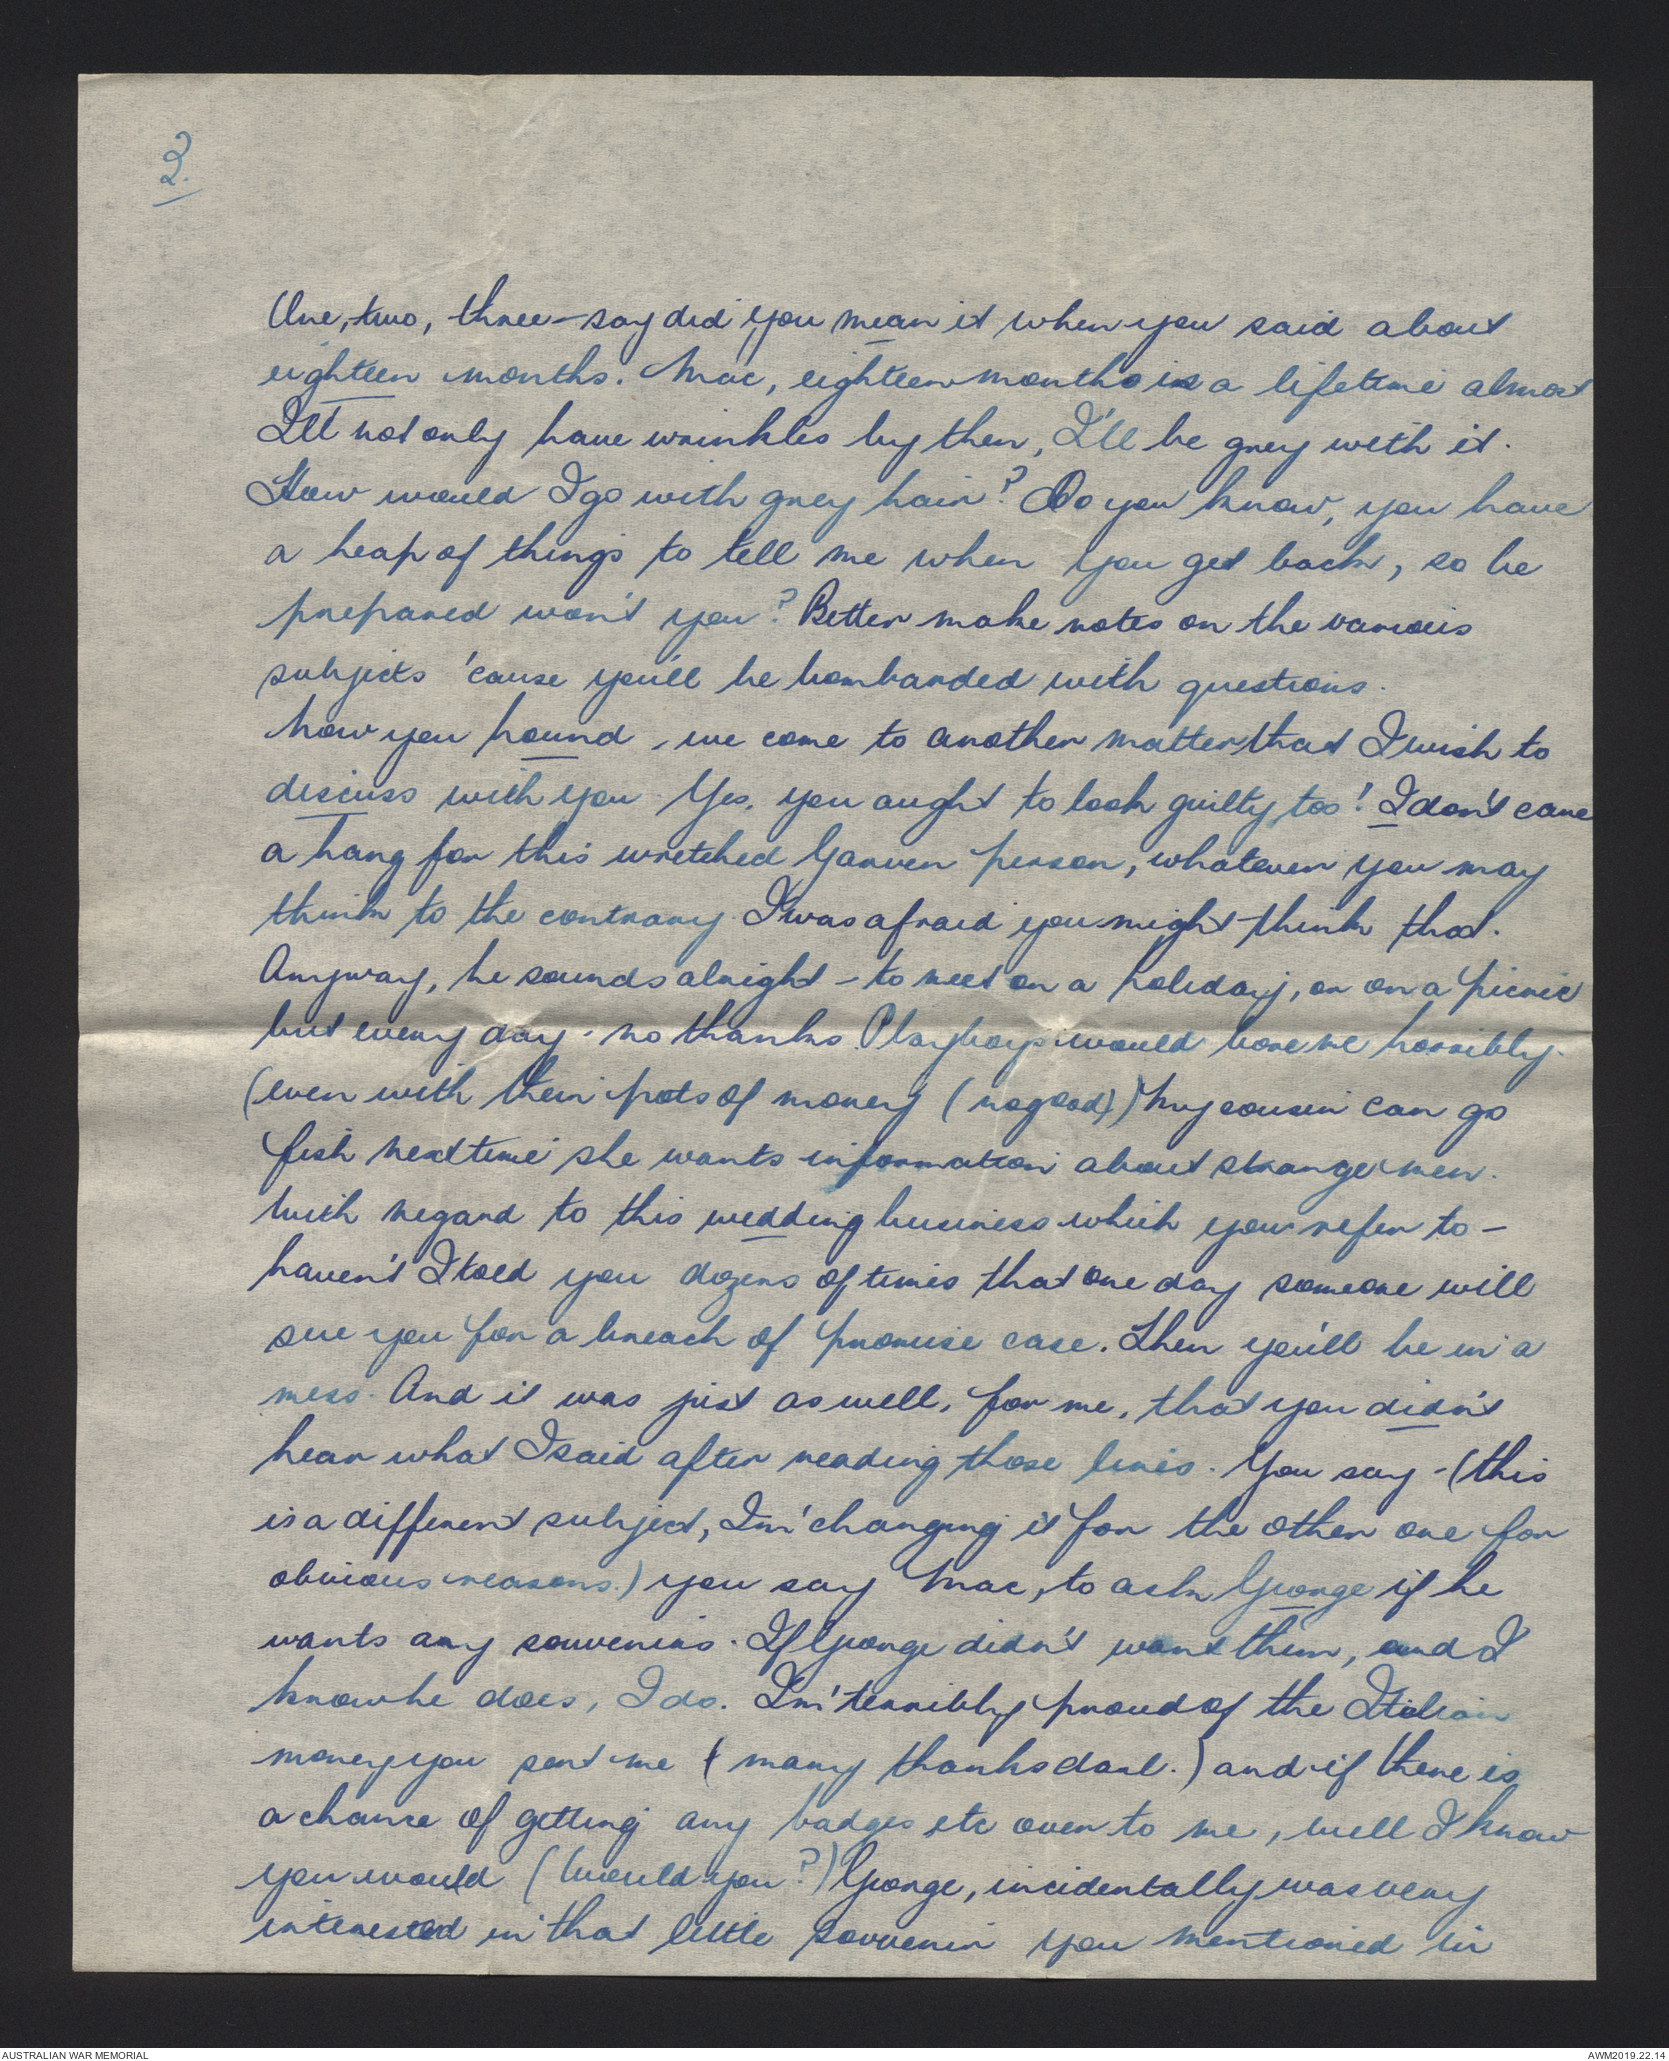 2.
One, two, three - say did you mean it when you said about
eighteen months. Mac, eighteen months is a lifetime almost
I'll not only have wrinkles by then, I'll be grey with it.
How would I go with grey hair? Do you know, you have
a heap of things to tell me when you get back, so be
prepared won't you? Better make notes on the various
subjects 'cause you'll be bombarded with questions.
Now you hound, we come to another matter that I wish to
discuss with you. Yes, you aught to look guilty too! I don't care
a hang for this wretched Garven person, whatever you may
think to the contrary. I was afraid you might think that.
Anyway, he sounds alright - to meet on a holiday, or on a picnic
but every day - no thanks. Playboys would bore me horribly.
(even with their pots of money (no good)) My cousin can go
fish next time she wants information about strange men.
With regard to this wedding business which you refer to -
haven't I told you dozens of times that one day someone will
sue you for a breach of promise case. Then you'll be in a
mess. And it was just as well, for me, that you didn't
hear what I said after reading those lines. You say - (this
is a different subject, I'm changing it for the other one for
obvious reasons.) you say Mac, to ask George if he
wants any souvenirs. If George didn't want them, and I
know he does, I do. I'm terribly proud of the Italian
money you sent me (many thanks darl.) and if there is
a chance of getting any badges etc over to me, well I know
you would (Would you?) George, incidentally was very
interested in that little souvenir you mentioned in
AUSTRALIAN WAR MEMORIAL
AWM2019.22.14